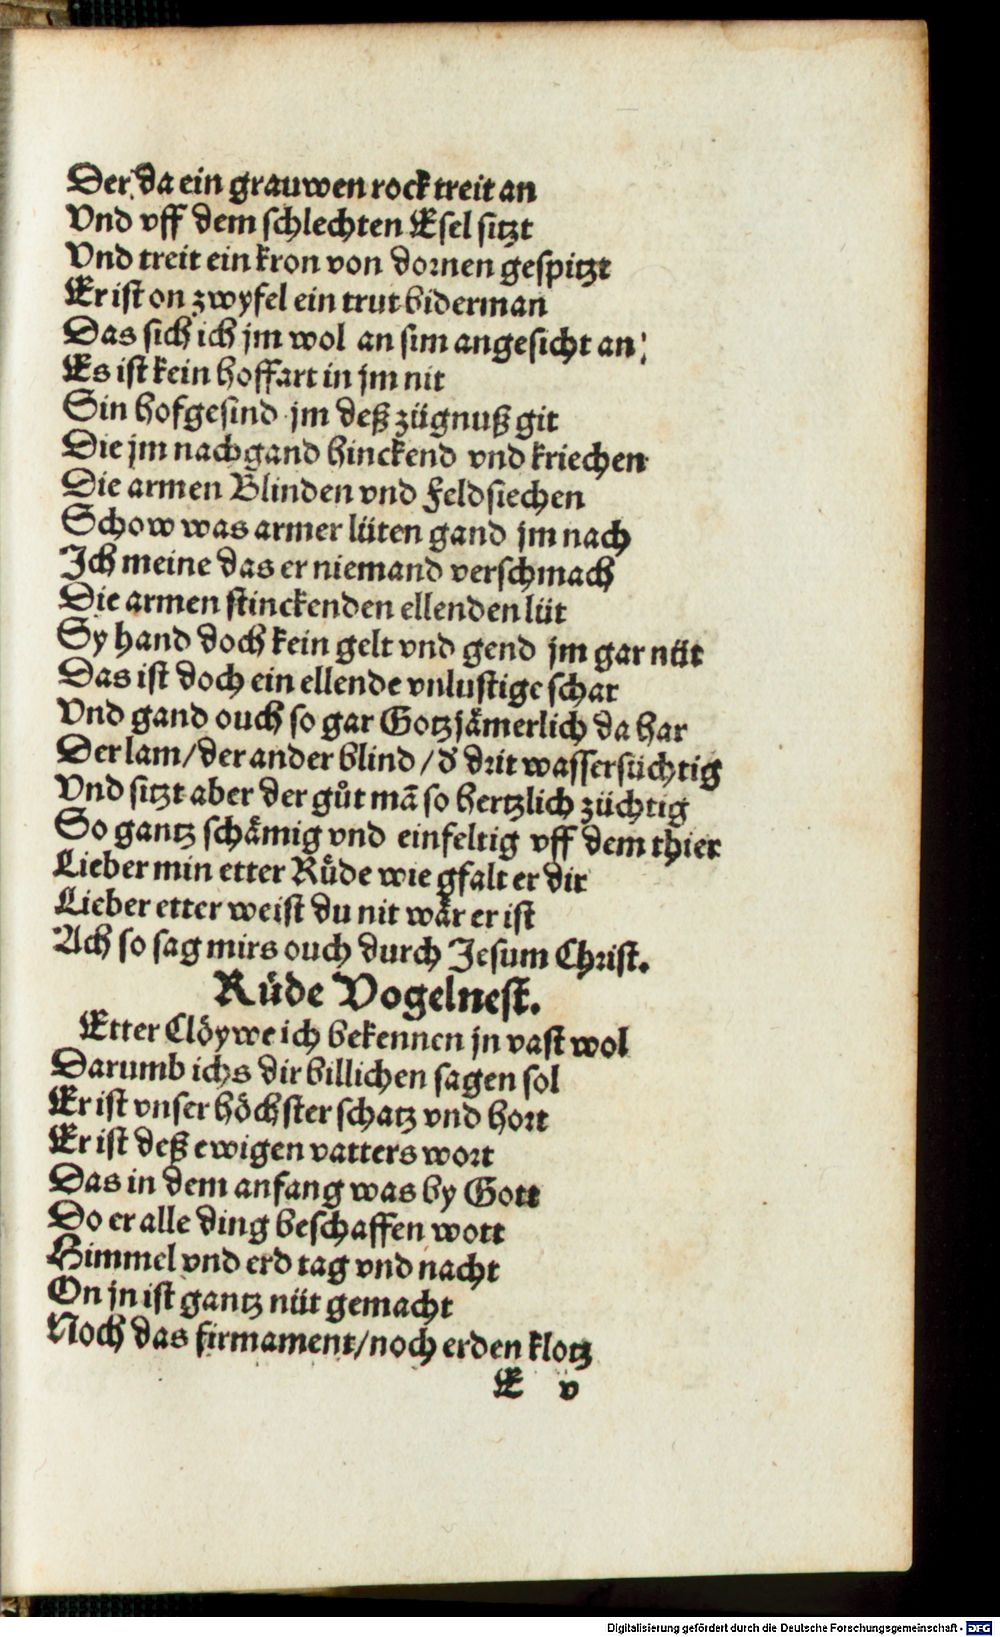 Der da ein grauwen rock treit an
Vnd vff dem schlechten Esel sitzt
Vnd treit ein kron von dornen gespitzt
Er ist on zwyfel ein trut biderman
Das sich ich jm wol an sim angesicht an;
Es ist kein hoffart in jm nit
Sin hofgesind jm deß zügnuß git
Die jm nachgand hinckend vnd kriechen
Die armen Blinden vnd Feldsiechen
Schow was armer lüten gand jm nach
Ich meine das er niemand verschmach
Die armen stinckenden ellenden lüt
Sy hand doch kein gelt vnd gend jm gar nüt
Das ist doch ein ellende vnlustige schar
Vnd gand ouch so gar Gotzjämerlich da har
Der lam/der ander blind/d̕ drit wassersüchtig
Vnd sitzt aber der gůt mã so hertzlich züchtig
So gantz schämig vnd einfeltig vff dem thier
Lieber min etter Rüde wie gfalt er dir
Lieber etter weist du nit wär er ist
Ach so sag mirs ouch durch Jesum Christ.
Rüde Vogelnest.
Etter Clöywe ich bekennen jn vast wol
Darumb ichs dir billichen sagen sol
Er ist vnser höchster schatz vnd hort
Er ist deß ewigen vatters wort
Das in dem anfang was by Gott
Do er alle ding beschaffen wott
Himmel vnd erd tag vnd nacht
On jn ist gantz nüt gemacht
Noch das firmament/noch erden klotz
E v
Digitalisierung gefördert durch die Deutsche Forschungsgemeinschaft - DFG